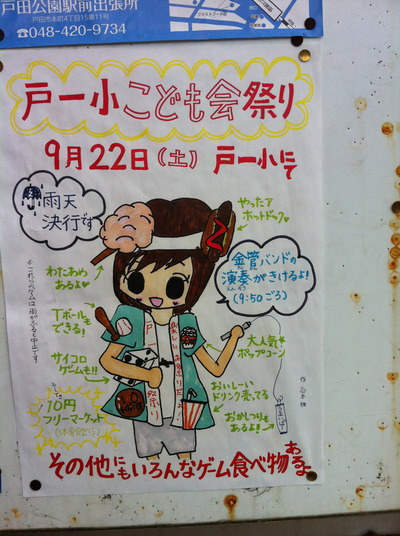 戸田公園駅前出張所
戸田市本町4丁目15番11号
☎048-420-9734
戸一小こども会祭り
9月22日(土) 戸一小にて
雨天
決行です
やったァ
ホットドック
金管バンドの
演奏がきけるよ!
えんそう
(9:50ごろ)
わたあめ
あるよ
Tボールも
できる!
サイコロ
ゲームも!!
大人気
ポップコーン
おいしい
ドリンク売ってる
おかしつりも
あるよ!
10円
フリーマーケット
その他にもいろんなゲーム食べ物あるよ